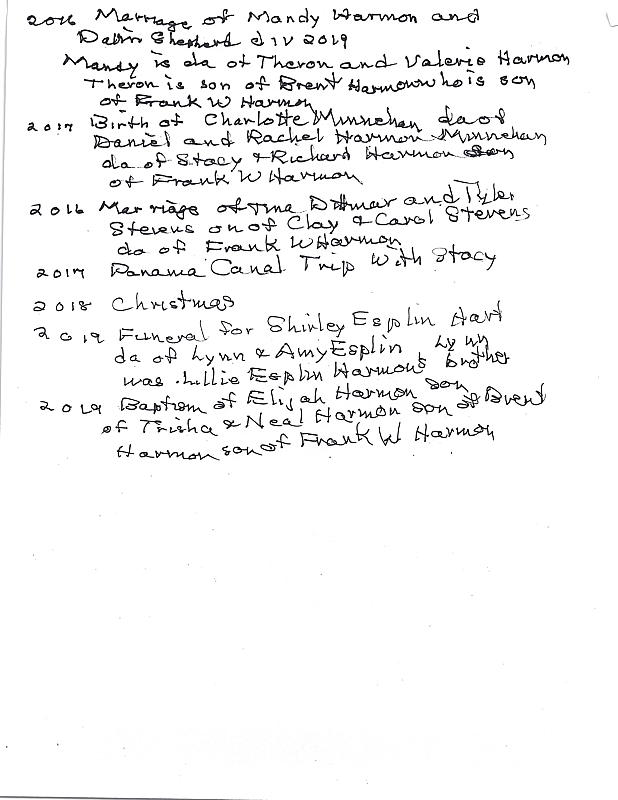 2016 Marriage of Mandy Harmon and
Dalin Shepherd div 2019
Mandy is da of Theron and Valerie Harmon
Theron is son of Brent Harmon who is son
of Frank W Harmon
2017 Birth of Charlotte Minnehan da of
Daniel and Rachel Harmon Minnehan
da of Stacy & Richard Harmon son
of Frank W Harmon
2016 Marriage of Tina Dittmar and Tyler
Stevens on of Clay & Carol Stevens
da of Frank W Harmon
2017 Panama Canal Trip With Stacy
2018 Christmas
2019 Funeral for Shirley Esplin Hart
da of Lynn & Amy Esplin, Lynn
was Lillie Esplin Harmons brother
2019 Baptism of Elijah Harmon son
of Trisha & Neal Harmon son of Brent
Harmon son of Frank W Harmon